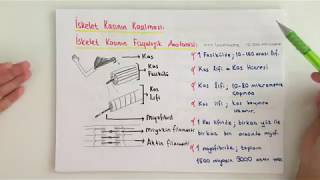 İskelet Kasının Kasılması:
İskelet Kasının Fizyolojik Anatomisi:
Kas
Kas
Fasikülü
Kas
lifi
Miyofibril
Miyozin filamenti
Aktin filamenti
1 Fasikülde; 10-100 arası lif.
Kas lifi = Kas Hücresi
Kas lifi; 10-80 mikrometre
çapında
Kas lifi; kas boyunca
uzanır.
1 Kas lifinde; birkaç yüz ile
birkaç bin arasında miyof.
1 miyofibrilde; toplam
1500 miyozin 3000 aktin